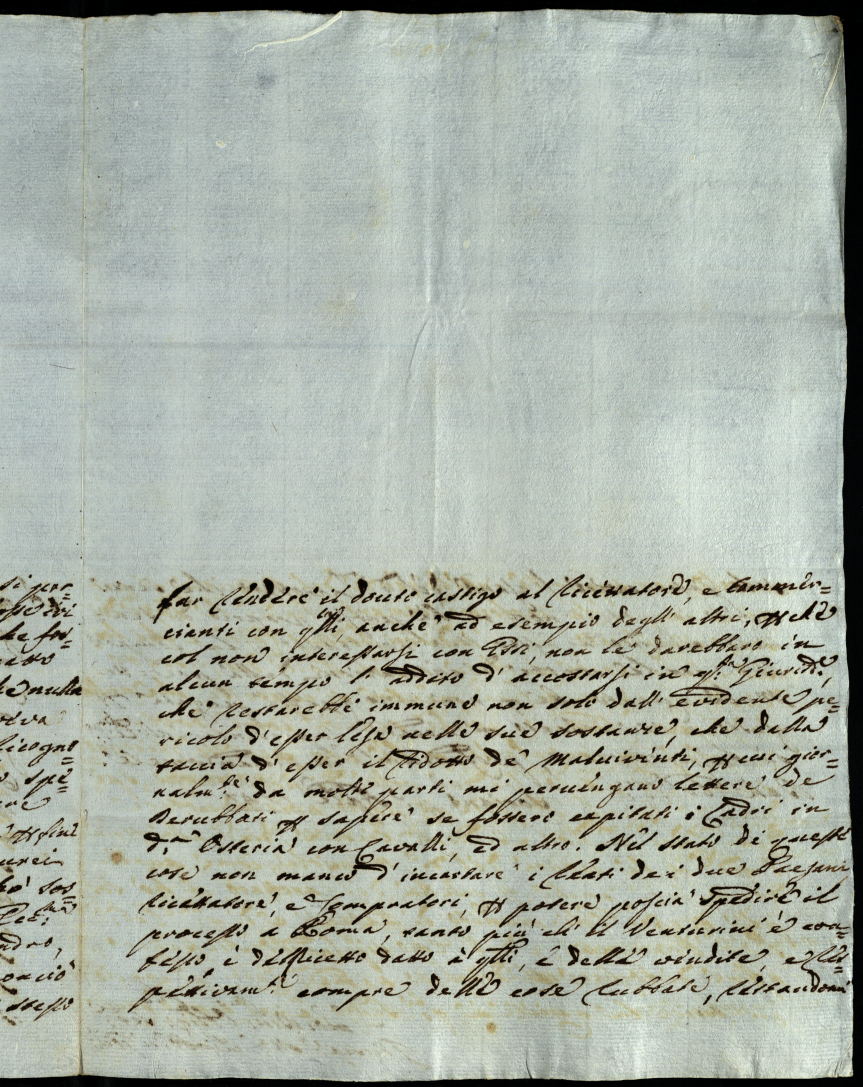 si per=
che fos=
atto
he nulla
veva
licogno=
spe=
ere
fine
sos=
ndro,
stesso
far rendere il douto castigo al ricettatore, e commer=
cianti con q.lli, anche ad esempio degl' altri, che
col non interessarsi con Essi, non le darebbero in
alcun tempo l' addito d' accostarsi in q.sta Giurisd.e,
che restarebbe immune non solo dall' evidente pe=
ricolo d' esser lesa nelle sue sostanze, che dalla
taccia d' esser il ridotto de' malviventi, cui gior=
nalm.te da molte parti mi pervengano lettere de
Derubbati sapere se fossero capitati i Ladri in
d.a Osteria con Cavalli, ed altro. Nel stato di queste
cose non manco d' incartare i reati de i due Paesani
ricettatore, e Compratori, potere poscia spedire il
processo a Roma, tanto più ch' il Venturini è con=
fesso e del ricetto datto à q.lli, e delle vendite, e res=
pettivam.te compre delle cose rubbate, restandomi